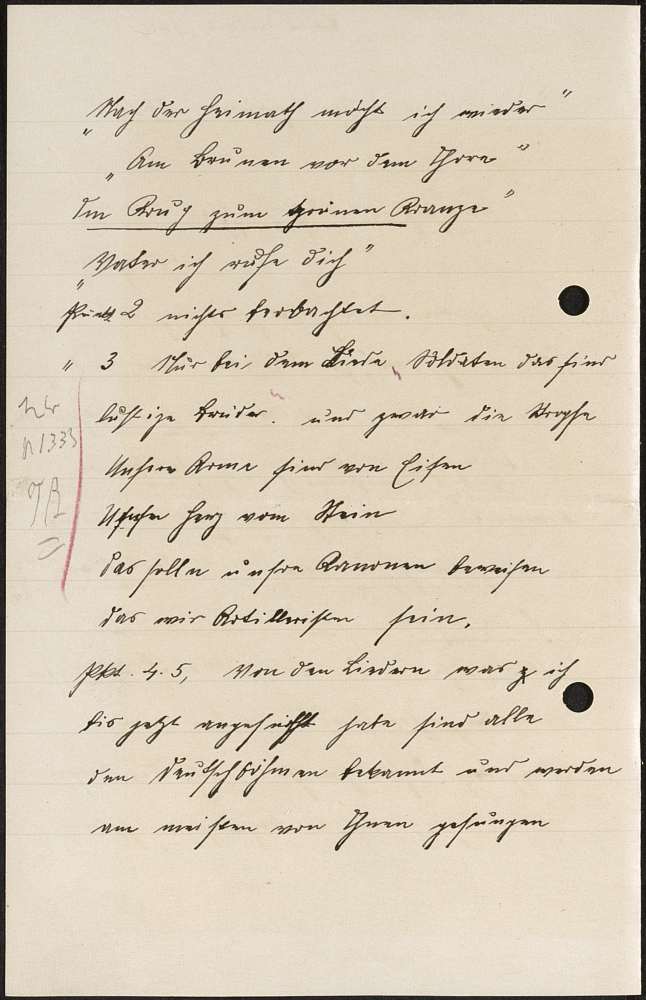 "Nach der Heimath möcht ich wieder"
"Am Brunnen vor dem Thore"
Im Krug zum grünen Kranze"
"Vater ich rufe dich"
Punkt 2 nichts beobachtet.
" 3 Nur bei dem Liede, Soldaten das sind
lustige Brüder. und zwar die Strophe
Unsere Arme sind von Eisen
Unser Herz vom Stein
das solln unsre Kanonen beweisen
das wir Artilleristen sein.
Pkt. 4. 5, Von den Liedern was ich
bis jetzt angeführt habe sind alle
den Deutschböhmen bekannt und werden
am meisten von Ihnen gesungen
A 1333